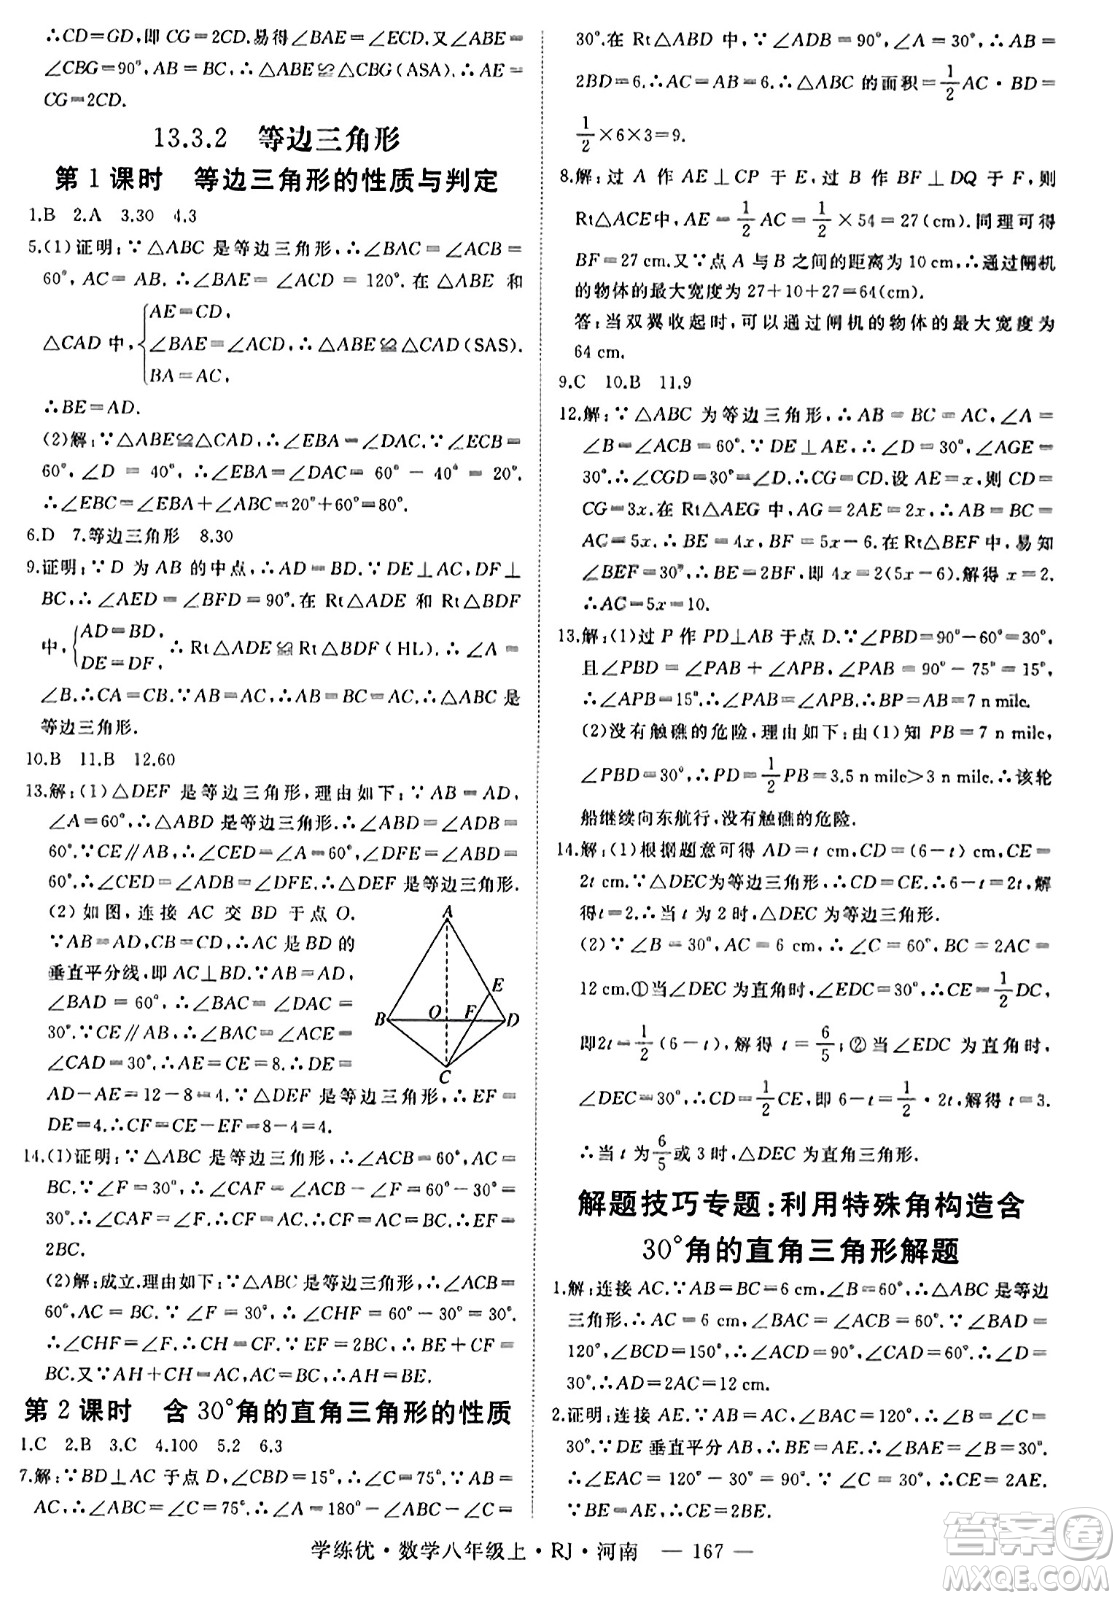 ∴CD=GD,即CG=2CD.易得∠BAE=∠ECD.又∵∠ABE=
∠CBG=90°,AB=BC,∴△ABE≌△CBG(ASA).∴AE=
CG=2CD.
13.3.2 等边三角形
第1课时 等边三角形的性质与判定
1.B 2.A 3.30 4.3
5.(1)证明:∵△ABC是等边三角形,∴∠BAC=∠ACB=
60°,AC=AB.∴∠BAE=∠ACD=120°.在△ABE和
△CAD中,{AE=CD,
∠BAE=∠ACD,∴△ABE≌△CAD(SAS).
BA=AC,
∴BE=AD.
(2)解:∵△ABE≌△CAD,∴∠EBA=∠DAC.∵∠ECB=
60°,∠D=40°,∴∠EBA=∠DAC=60°-40°=20°.
∴∠EBC=∠EBA+∠ABC=20°+60°=80°.
6.D 7.等边三角形 8.30
9.证明:∵D为AB的中点,∴AD=BD.∵DE⊥AC,DF⊥
BC,∴∠AED=∠BFD=90°.在Rt△ADE和Rt△BDF
中,{AD=BD,
DE=DF, ∴Rt△ADE≌Rt△BDF(HL).∴∠A=
∠B.∴CA=CB.∵AB=AC,∴AB=BC=AC.∴△ABC是
等边三角形.
10.B 11.B 12.60
13.解:(1)△DEF是等边三角形,理由如下:∵AB=AD,
∠A=60°,∴△ABD是等边三角形.∴∠ABD=∠ADB=
60°.∵CE∥AB,∴∠CED=∠A=60°,∠DFE=∠ABD=
60°.∴∠CED=∠ADB=∠DFE.∴△DEF是等边三角形.
(2)如图,连接AC交BD于点O.
∵AB=AD,CB=CD,∴AC是BD的
垂直平分线,即AC⊥BD.∵AB=AD,
∠BAD=60°,∴∠BAC=∠DAC=
30°.∵CE∥AB,∴∠BAC=∠ACE=
∠CAD=30°.∴AE=CE=8.∴DE=
AD-AE=12-8=4.∵△DEF是等边三角形,∴EF=
DE=4.∴CF=CE-EF=8-4=4.
A
E
B
O
F
D
C
14.(1)证明:∵△ABC是等边三角形,∴∠ACB=60°,AC=
BC.∵∠F=30°,∴∠CAF=60°-30°=30°.
∴∠CAF=∠F.∴CF=AC.∴CF=AC=BC.∴EF=
2BC.
(2)解:成立.理由如下:∵△ABC是等边三角形,∴∠ACB=
60°,AC=BC.∵∠F=30°,∴∠CHF=60°-30°=30°.
∴∠CHF=∠F.∴CH=CF.∵EF=2BC,∴BE+CF=
BC.又∵AH+CH=AC,AC=BC,∴AH=BE.
第2课时 含30°角的直角三角形的性质
1.C 2.B 3.C 4.100 5.2 6.3
7.解:∵BD⊥AC于点D,∠CBD=15°,∴∠C=75°.∵AB=
AC,∴∠ABC=∠C=75°.∴∠A=180°-∠ABC-∠C=
30°.在Rt△ABD中,∵∠ADB=90°,∠A=30°,∴AB=
2BD=6.∴AC=AB=6.∴△ABC的面积=1/2 AC·BD=
1/2×6×3=9.
8.解:过A作AE⊥CP于E,过B作BF⊥DQ于F,则
Rt△ACE中,AE=1/2 AC=1/2×54=27(cm).同理可得
BF=27 cm.又∵点A与B之间的距离为10 cm,∴通过闸机
的物体的最大宽度为27+10+27=64(cm).
答:当双翼收起时,可以通过闸机的物体的最大宽度为
64 cm.
9.C 10.B 11.9
12.解:∵△ABC为等边三角形,∴AB=BC=AC,∠A=
∠B=∠C=60°.∵DE⊥AE,∴∠D=30°,∠AGE=
30°.∴∠CGD=∠AGE=30°=∠D.∴CG=CD.设AE=x,则
CG=CD=3x.在Rt△AEG中,AG=2AE=2x,∴AB=BC=
AC=5x.∴BE=4x,BF=5x-6.在Rt△BEF中,易知
∠BEF=30°.∴BE=2BF,即4x=2(5x-6).解得x=2.
∴AC=5x=10.
13.解:(1)过P作PD⊥AB于点D.∵∠PBD=90°-60°=30°,
且∠PBD=∠PAB+∠APB,∠PAB=90°-75°=15°,
∴∠APB=15°.∴∠PAB=∠APB.∴BP=AB=7 n mile.
(2)没有触礁的危险,理由如下:由(1)知PB=7 n mile.∵
∠PBD=30°,∴PD=1/2 PB=3.5 n mile>3 n mile.∴该轮
船继续向东航行,没有触礁的危险.
14.解:(1)根据题意可得AD=t cm,CD=(6-t)cm,CE=
2t cm.∵△DEC为等边三角形,∴CD=CE.∴6-t=2t,解
得t=2.∴当t为2时,△DEC为等边三角形.
(2)∵∠B=30°,AC=6 cm,∴∠C=60°,BC=2AC=
12 cm.①当∠DEC为直角时,∠EDC=30°,∴CE=1/2 DC,
即2t=1/2(6-t),解得t=6/5;②当∠EDC为直角时,
∠DEC=30°,∴CD=1/2 CE,即6-t=1/2·2t.解得t=3.
∴当t为6/5或3时,△DEC为直角三角形.
解题技巧专题:利用特殊角构造含
30°角的直角三角形解题
1.解:连接AC.∵AB=BC=6 cm,∠B=60°,∴△ABC是等边
三角形,∴AC=6 cm,∠BAC=∠BCA=60°.∵∠BAD=
120°,∠BCD=150°,∴∠CAD=60°,∠ACD=90°.∴∠D=
30°.∴AD=2AC=12 cm.
2.证明:连接AE.∵AB=AC,∠BAC=120°,∴∠B=∠C=
30°.∵DE垂直平分AB,∴BE=AE.∴∠BAE=∠B=30°.
∴∠EAC=120°-30°=90°.又∵∠C=30°,∴CE=2AE.
∵BE=AE,∴CE=2BE.
学练优·数学八年级上·RJ·河南 — 167 —
答案圈
MXQE.COM